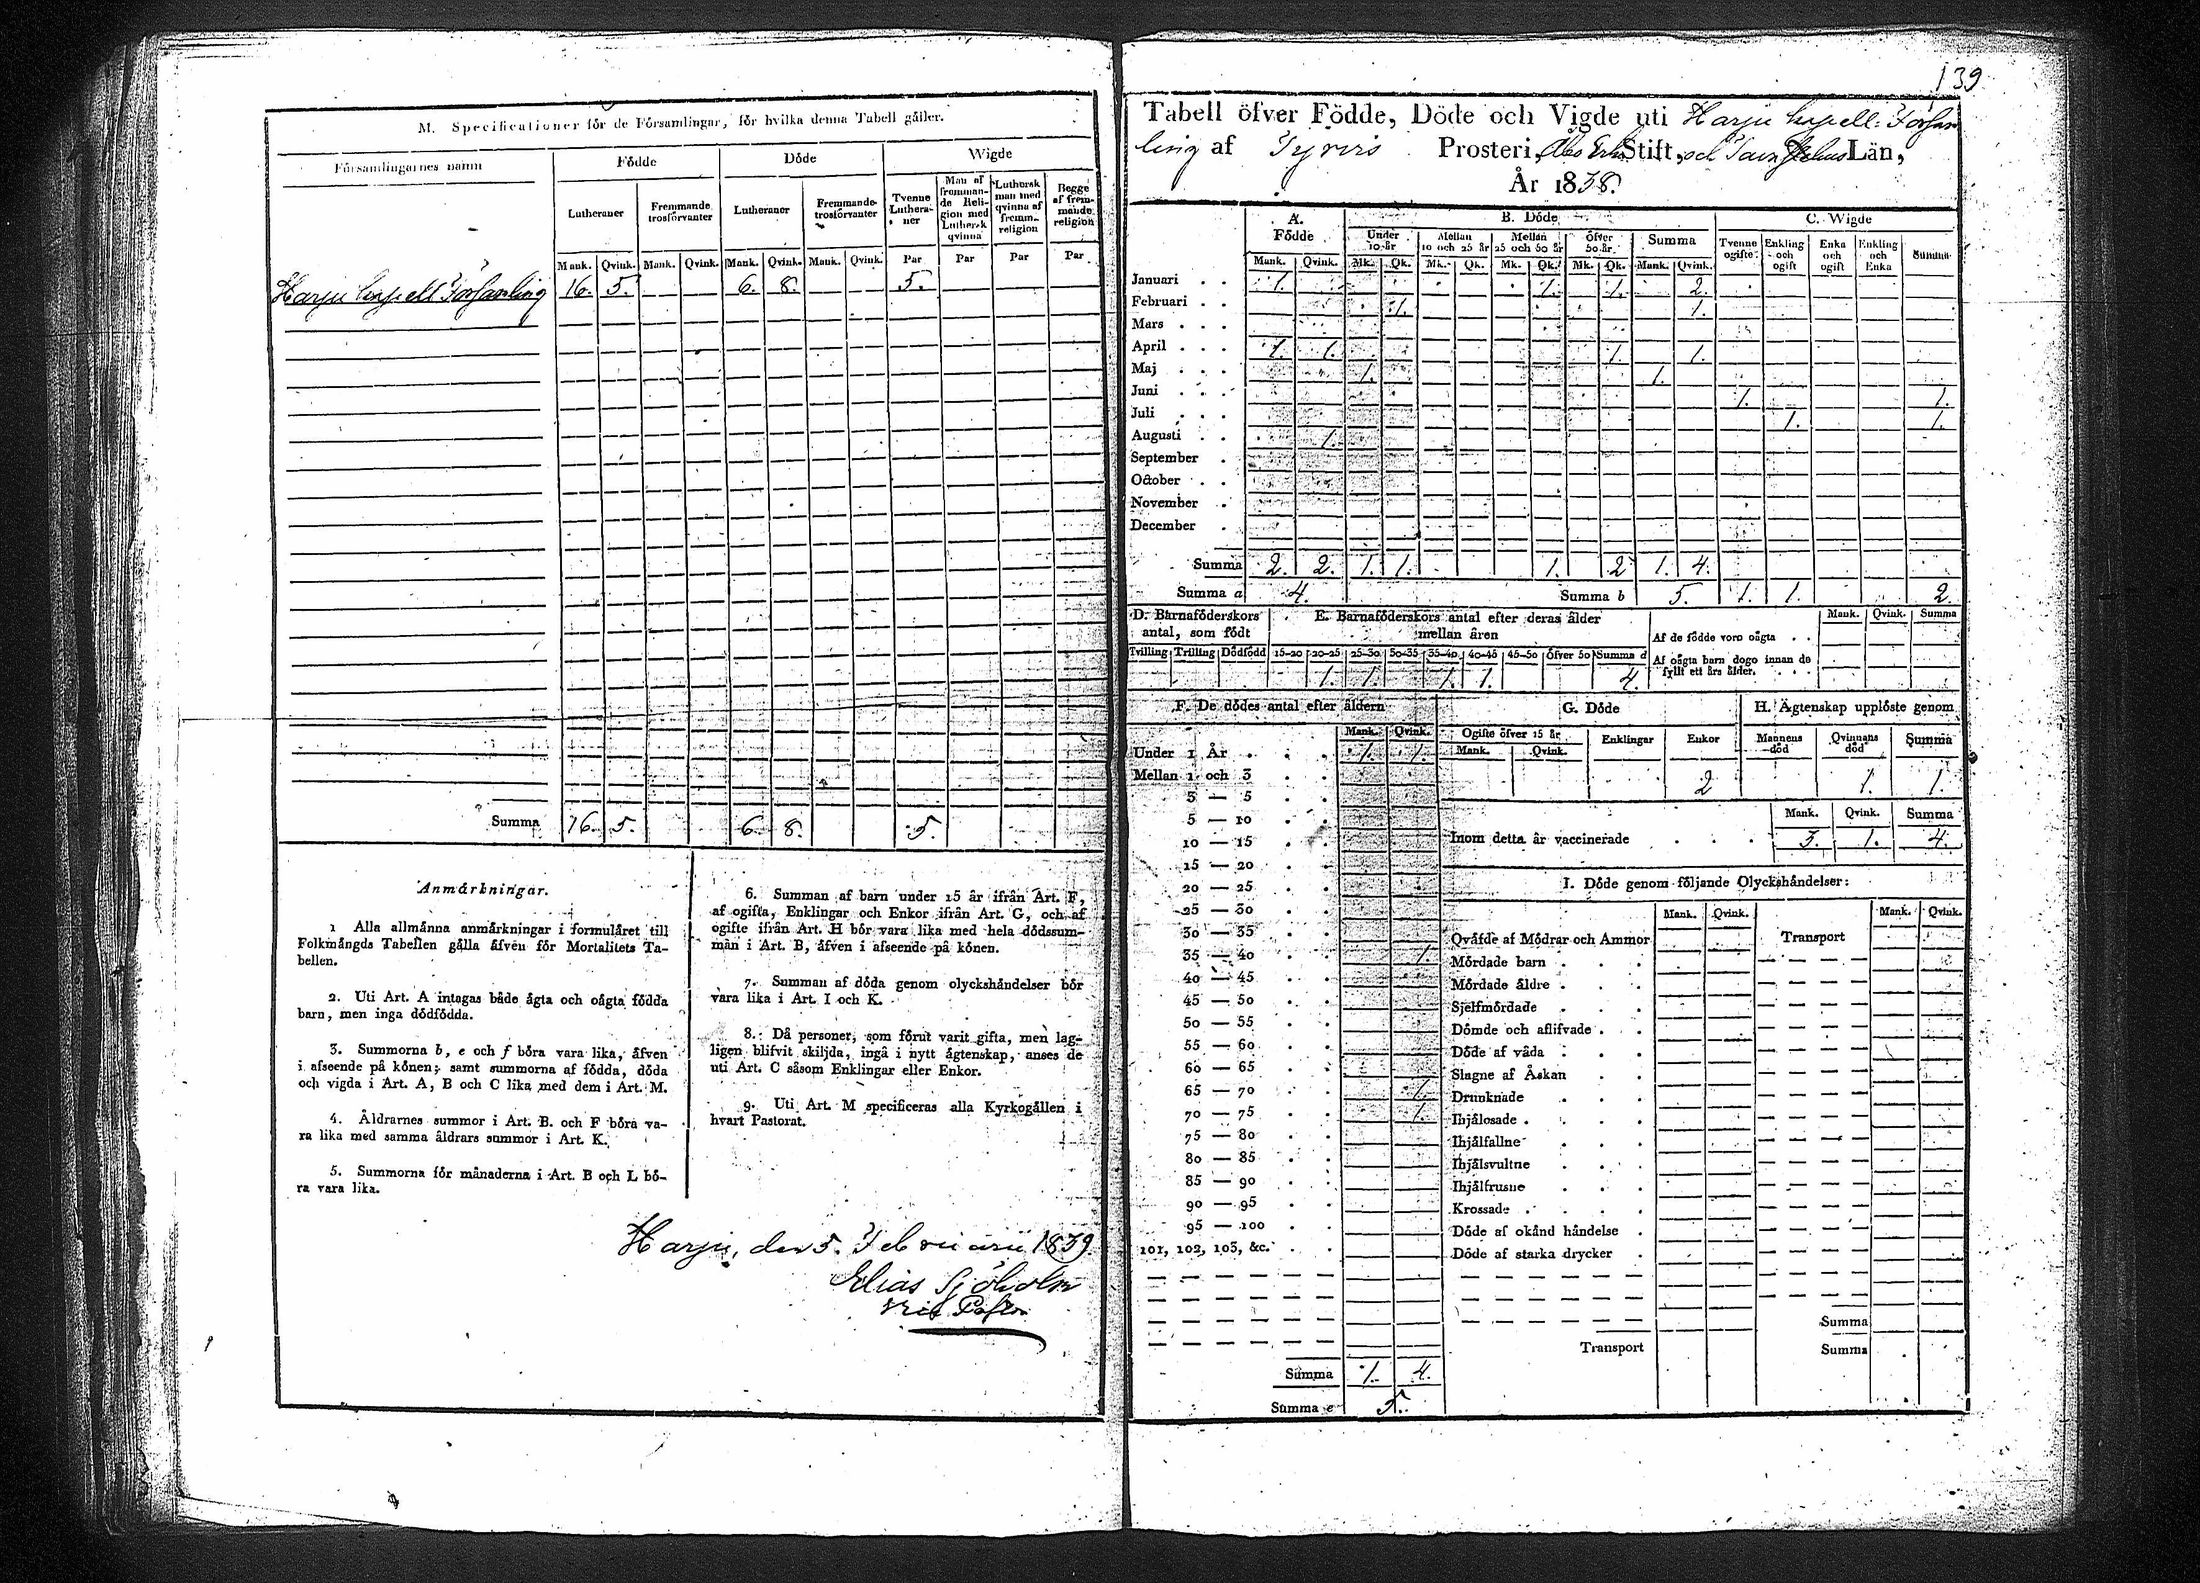 M. Specificationer för de Församlingar, för hvilka denna Tabell gäller.
Församlingarnes namn Födde Döde Wigde
Lutheraner Fremmande trosförvanter Lutheraner Fremmande trosförvanter Tvenne Lutheraner Man af fremmande Religion med Luthersk qvinna Luthersk man med qvinna af fremm. religion Begge af fremmande religion
Mank. Qvink. Mank. Qvink. Mank. Qvink. Mank. Qvink. Par Par Par Par
Harju Capell Församling 16. 5. 6. 8. 5.
Summa 16. 5. 6. 8. 5.
Anmärkningar.
1 Alla allmänna anmärkningar i formuläret till
Folkmängds Tabellen gälla äfven för Mortalitets Ta-
bellen.
2. Uti Art. A intagas både ägta och oägta födda
barn, men inga dödfödda.
3. Summorna b, e och f böra vara lika, äfven
i afseende på könen; samt summorna af födda, döda
och vigda i Art. A, B och C lika med dem i Art. M.
4. Åldrarnes summor i Art. B. och F böra va-
ra lika med samma åldrars summor i Art. K.
5. Summorna för månaderna i Art. B och L bö-
ra vara lika.
6. Summan af barn under 15 år ifrån Art. F,
af ogifta, Enklingar och Enkor ifrån Art. G, och af
ogifte ifrån Art. H bör vara lika med hela dödssum-
man i Art. B, äfven i afseende på könen.
7. Summan af döda genom olyckshändelser bör
vara lika i Art. I och K.
8. Då personer, som förut varit gifta, men lag-
ligen blifvit skiljda, ingå i nytt ägtenskap, anses de
uti Art. C såsom Enklingar eller Enkor.
9. Uti Art. M specificeras alla Kyrkogällen i
hvart Pastorat.
Harju, den 5. Februarii 1839
Elias Sjöholm
139
Tabell öfver Födde, Döde och Vigde uti Harju Capell-Försam
ling af Tyrvis Prosteri, Åbo Erke Stift, och Tavastehus Län,
År 1838.
A. Födde B. Döde C. Wigde
Under 10 år Mellan 10 och 25 år Mellan 25 och 50 år Öfver 50 år Summa Tvenne ogifte Enkling och ogift Enka och ogift Enkling och Enka Summa
Mank. Qvink. Mk. Qk. Mk. Qk. Mk. Qk. Mk. Qk. Mank. Qvink.
Januari 1. 1. 1. 2.
Februari 1. 1.
Mars
April 1. 1. 1. 1.
Maj 1. 1.
Juni 1. 1.
Juli 1. 1.
Augusti 1.
September
October
November
December
Summa 2. 2. 1. 1. 1. 2 1. 4.
Summa a 4. Summa b 5. 1. 1. 2.
D. Barnaföderskors antal, som födt
Tvilling Trilling Dödfödd
E. Barnaföderskors antal efter deras ålder mellan åren
15-20 20-25 25-30 30-35 35-40 40-45 45-50 Öfver 50 Summa d
1. 1. 1. 1. 4.
Mank. Qvink. Summa
Af de födde voro oägta
Af oägta barn dogo innan de fyllt ett års ålder.
F. De dödes antal efter åldern
Mank. Qvink.
Under 1 År 1. 1.
Mellan 1 och 3
3 — 5
5 — 10
10 — 15
15 — 20
20 — 25
25 — 30
30 — 35
35 — 40 1.
40 — 45
45 — 50
50 — 55
55 — 60
60 — 65
65 — 70 1.
70 — 75 1.
75 — 80
80 — 85
85 — 90
90 — 95
95 — 100
101, 102, 103, &c.
Summa 1. 4.
Summa e 5.
G. Döde
Ogifte öfver 15 år Enklingar Enkor
Mank. Qvink.
2
H. Ägtenskap upplöste genom
Mannens död Qvinnans död Summa
1. 1.
Mank. Qvink. Summa
Inom detta år vaccinerade 3. 1. 4.
I. Döde genom följande Olyckshändelser:
Mank. Qvink. Mank. Qvink.
Qväfde af Mödrar och Ammor Transport
Mördade barn
Mördade äldre
Sjelfmördade
Dömde och aflifvade
Döde af våda
Slagne af Åskan
Drunknade
Ihjälosade
Ihjälfallne
Ihjälsvultne
Ihjälfrusne
Krossade
Döde af okänd händelse
Döde af starka drycker
Summa
Transport Summa